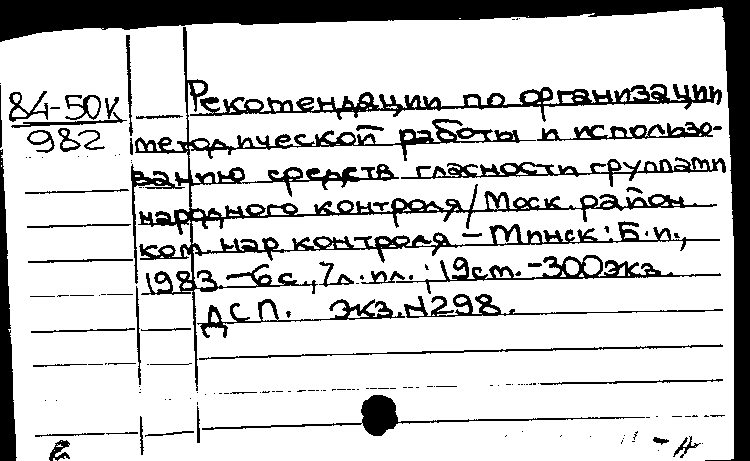 84-50К
982
Рекомендации по организации
методической работы и использо-
ванию средств гласности группами
народного контроля/Моск. район.
ком. нар. контроля – Минск: Б.и.,
1983. – 6 с., 7 л. ил.; 19 ст. – 300 экз.
ДСП. экз. N298.